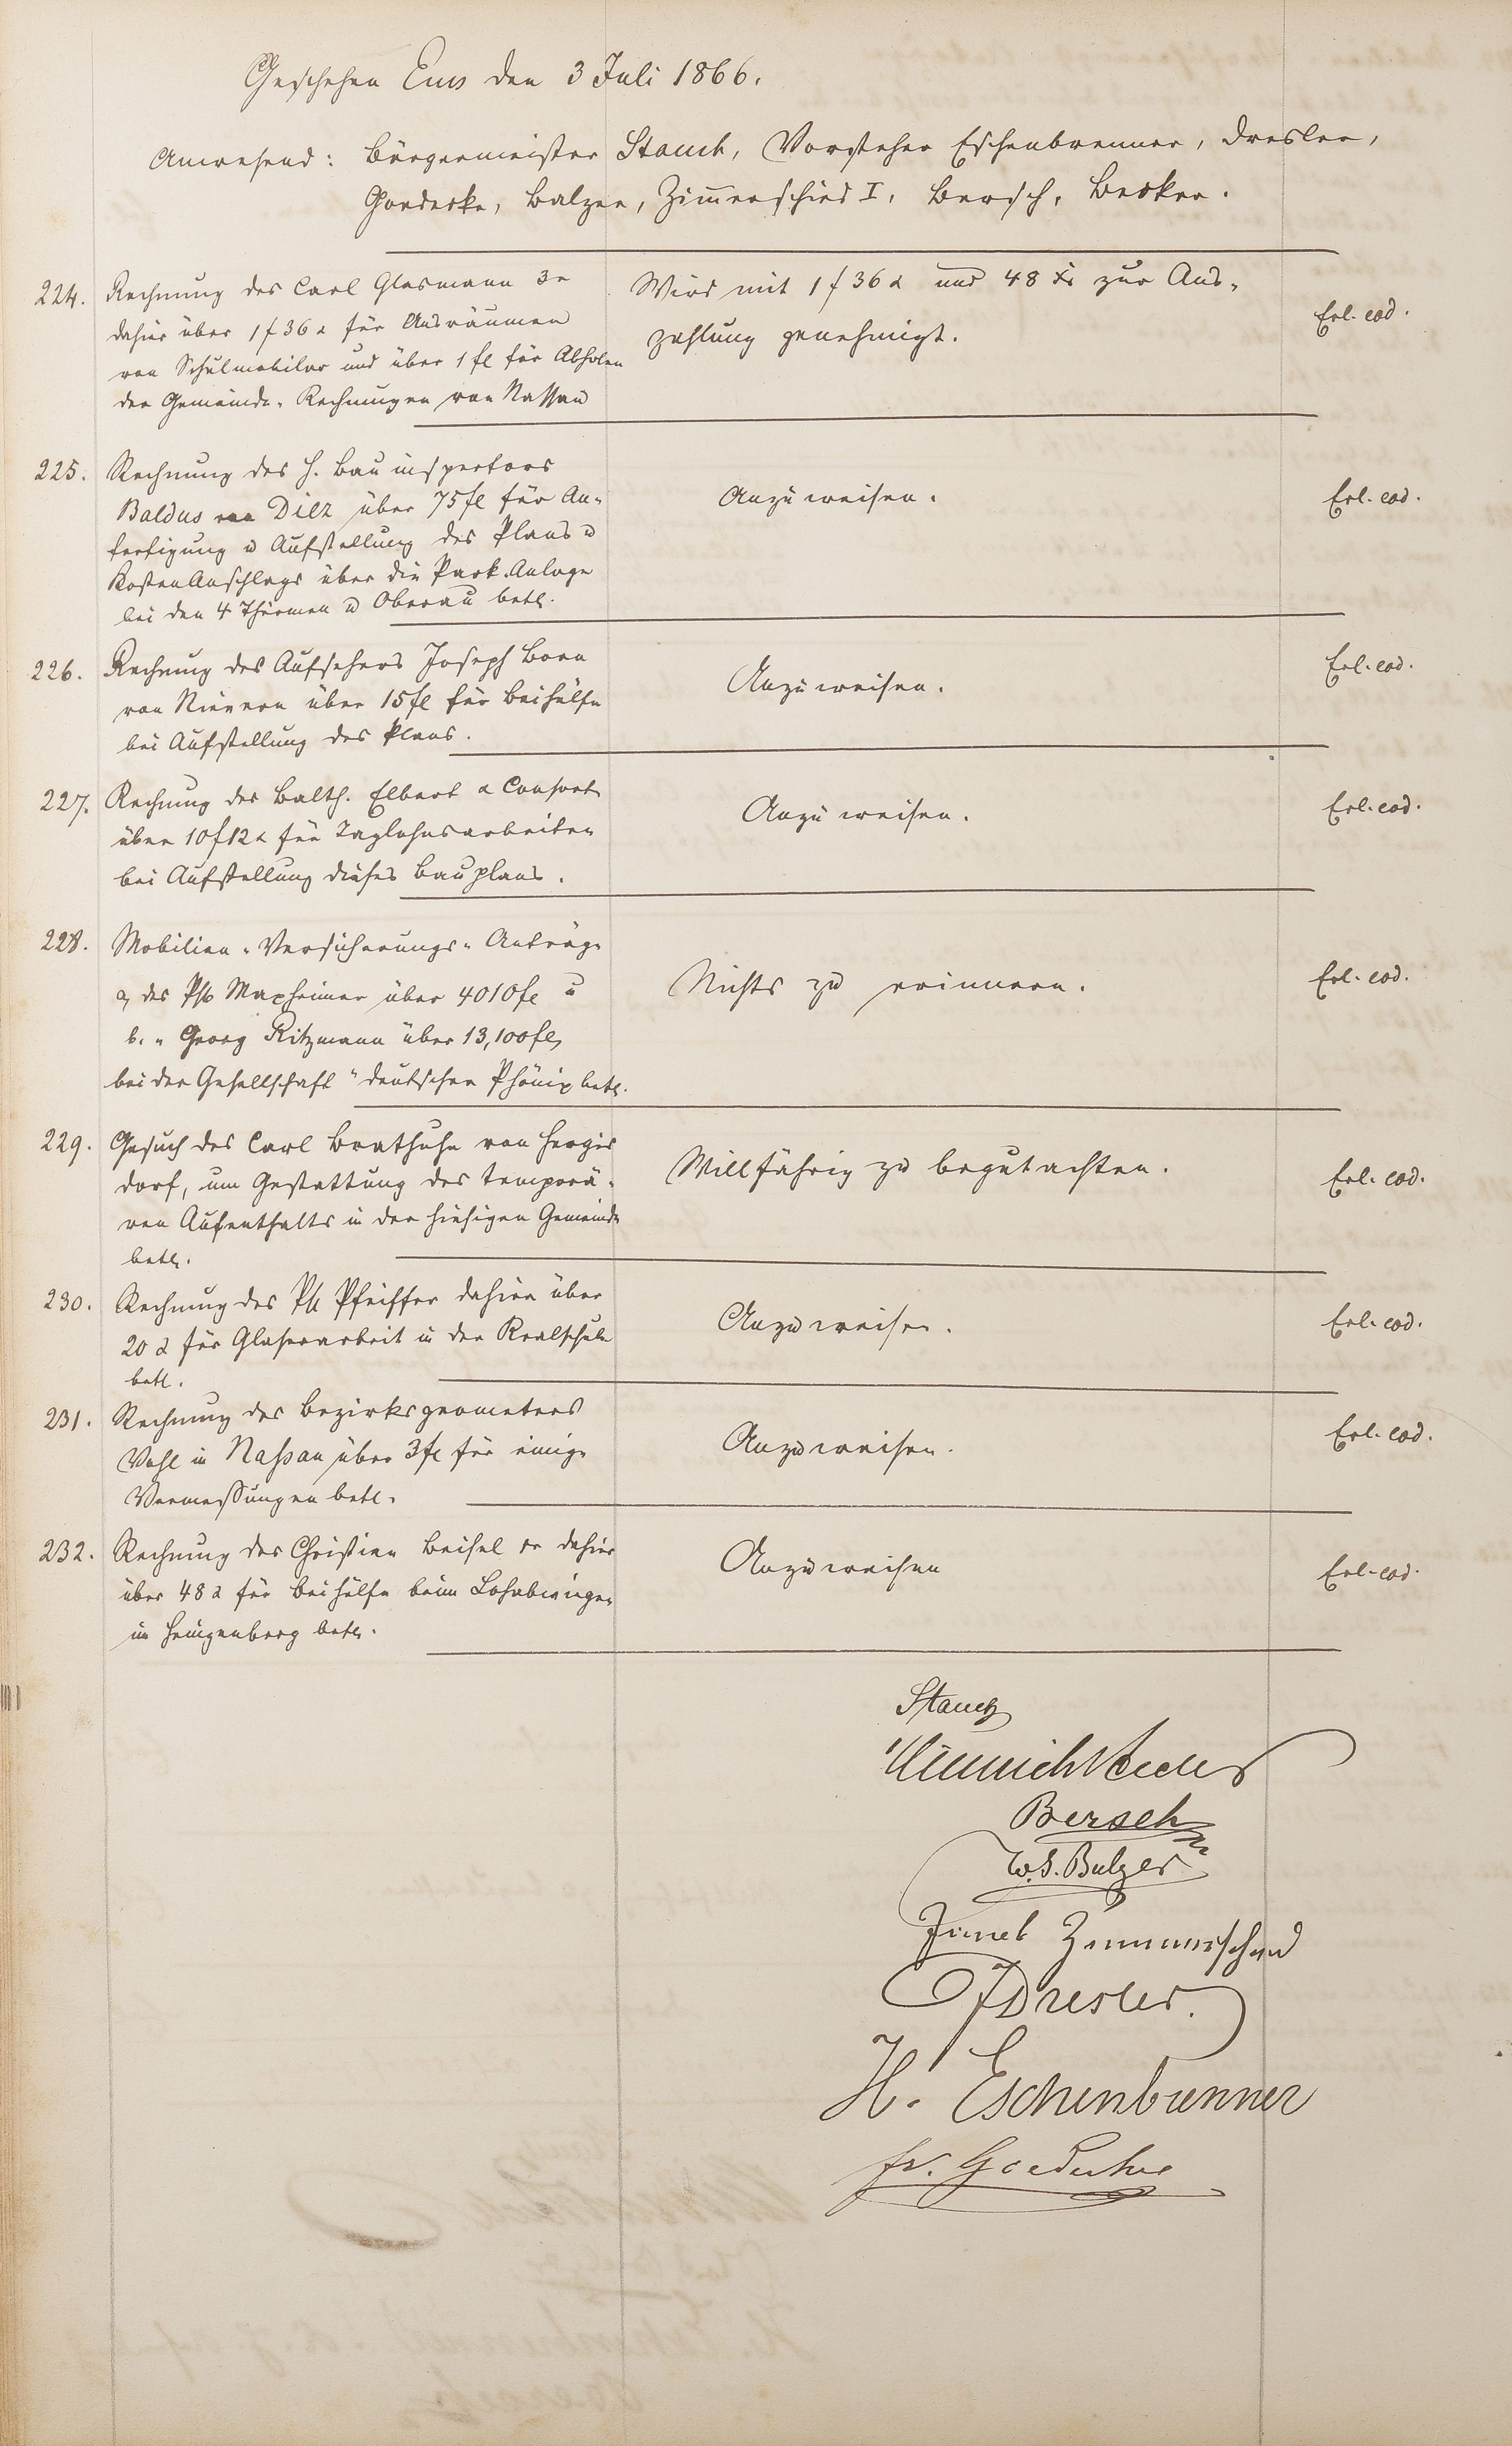 Geschehen Ems den 3 Juli 1866.
Anwesend: Bürgermeister Stauch, Vorsteher Eschenbrenner, Dresler,
Goedecke, Balzer, Zim̄erschied I, Bersch, Becker.
224. Rechnung des Carl Glasmann 3r
dahier über 1 f 36 x für Ausräumen
von Schulmobilar und über 1 fl für Abholen
der Gemeinde-Rechnungen von Nassau
Wird mit 1 f 36 x und 48 xr zur Aus-
zahlung genehmigt.
Erl. eod.
225. Rechnung des H. Bauinspectors
Baldus von Diez über 75 fl für An-
fertigung u Aufstellung des Plans u
Kosten Anschlags über die Park-Anlage
bei den 4 Thürmen u Oberau betr.
Anzuweisen.
Erl. eod.
226. Rechnung des Aufsehers Joseph Born
von Nievern über 15 fl für Beihülfe
bei Aufstellung des Plans.
Anzuweisen.
Erl. eod.
227. Rechnung des Balth. Elbert & Consort
über 10 f 12 x für Taglohnsarbeiten
bei Aufstellung dieses Bauplans.
Anzuweisen.
Erl. eod.
228. Mobilien-Versicherungs-Anträge
a, des Ph Maxheimer über 4010 fl u
b. " Georg Ritzmann über 13,100 fl,
bei der Gesellschaft "deutscher Phönix betr.
Nichts zu erinnern.
Erl. eod.
229. Gesuch des Carl Brathuhn von Hergis
dorf, um Gestattung des temporä-
ren Aufenthalts in der hiesigen Gemeinde
betr.
Willfährig zu begutachten.
Erl. eod.
230. Rechnung des Ph Pfeiffer dahier über
20 x für Glaserarbeit in der Realschule
betr.
Anzuweisen.
Erl. eod.
231. Rechnung des Bezirksgeometers
Vohl in Nassau über 3 fl für einige
Vermessungen betr.
Anzuweisen.
Erl. eod.
232. Rechnung des Christian Beisel 3r dahier
über 48 x für Beihülfe beim Lohabwiegen
im Hengenberg betr.
Anzuweisen
Erl. eod.
Stauch
Bersch
W. J. Balzer
Jacob Zimmerschied
J Dresler.
H. Eschenbrenner
Fr. Goedecke